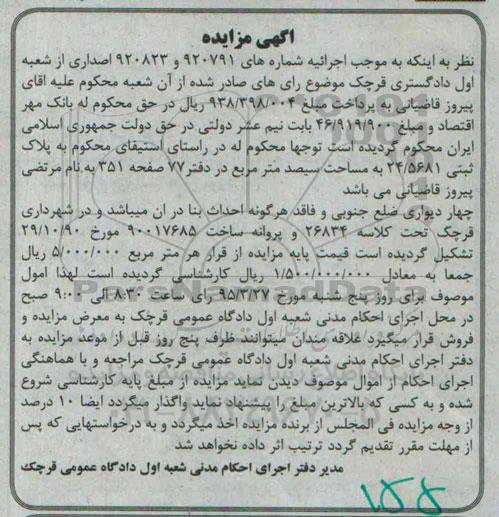 آگهی مزایده
نظر به اینکه به موجب اجرائیه شماره های ۹۲۰۷۹۱ و ۹۲۰۸۲۳ اصداری از شعبه
اول دادگستری قرچک موضوع رای های صادر شده از آن شعبه محکوم علیه اقای
پیروز قاضیانی به پرداخت مبلغ ۹۳۸/۳۹۸/۰۰۴ ریال در حق محکوم له بانک مهر
اقتصاد و مبلغ ۴۶/۹۱۹/۹۰۰ بابت نیم عشر دولتی در حق دولت جمهوری اسلامی
ایران محکوم گردیده است توجها محکوم له در راستای استیفای محکوم به پلاک
ثبتی ۲۴/۵۶۸۱ به مساحت سیصد متر مربع در دفتر۷۷ صفحه ۳۵۱ به نام مرتضی
پیروز قاضیانی می باشد
چهار دیواری ضلع جنوبی و فاقد هرگونه احداث بنا در ان میباشد و در شهرداری
قرچک تحت کلاسه ۲۶۸۳۴ و پروانه ساخت ۹۰۰۱۷۶۸۵ مورخ ۲۹/۱۰/۹۰
تشکیل گردیده است قیمت پایه مزایده از قرار هر متر مربع ۵/۰۰۰/۰۰۰ ریال
جمعا به معادل ۱/۵۰۰/۰۰۰/۰۰۰ ریال کارشناسی گردیده است لهذا امول
موصوف برای روز پنج شنبه مورخ ۹۵/۳/۲۷ رای ساعت ۸:۳۰ الی ۹:۰۰ صبح
در محل اجرای احکام مدنی شعبه اول دادگاه عمومی قرچک به معرض مزایده و
فروش قرار میگیرد علاقه مندان میتوانند ظرف پنج روز قبل از موعد مزایده به
دفتر اجرای احکام مدنی شعبه اول دادگاه عمومی قرچک مراجعه و با هماهنگی
اجرای احکام از اموال موصوف دیدن نماید مزایده از مبلغ پایه کارشناسی شروع
شده و به کسی که بالاترین مبلغ را پیشنهاد نماید واگذار میگردد ایضا ۱۰ درصد
از وجه مزایده فی المجلس از برنده مزایده اخذ میگردد و به درخواستهایی که پس
از مهلت مقرر تقدیم گردد ترتیب اثر داده نخواهد شد
مدیر دفتر اجرای احکام مدنی شعبه اول دادگاه عمومی قرچک
ParsNamadData